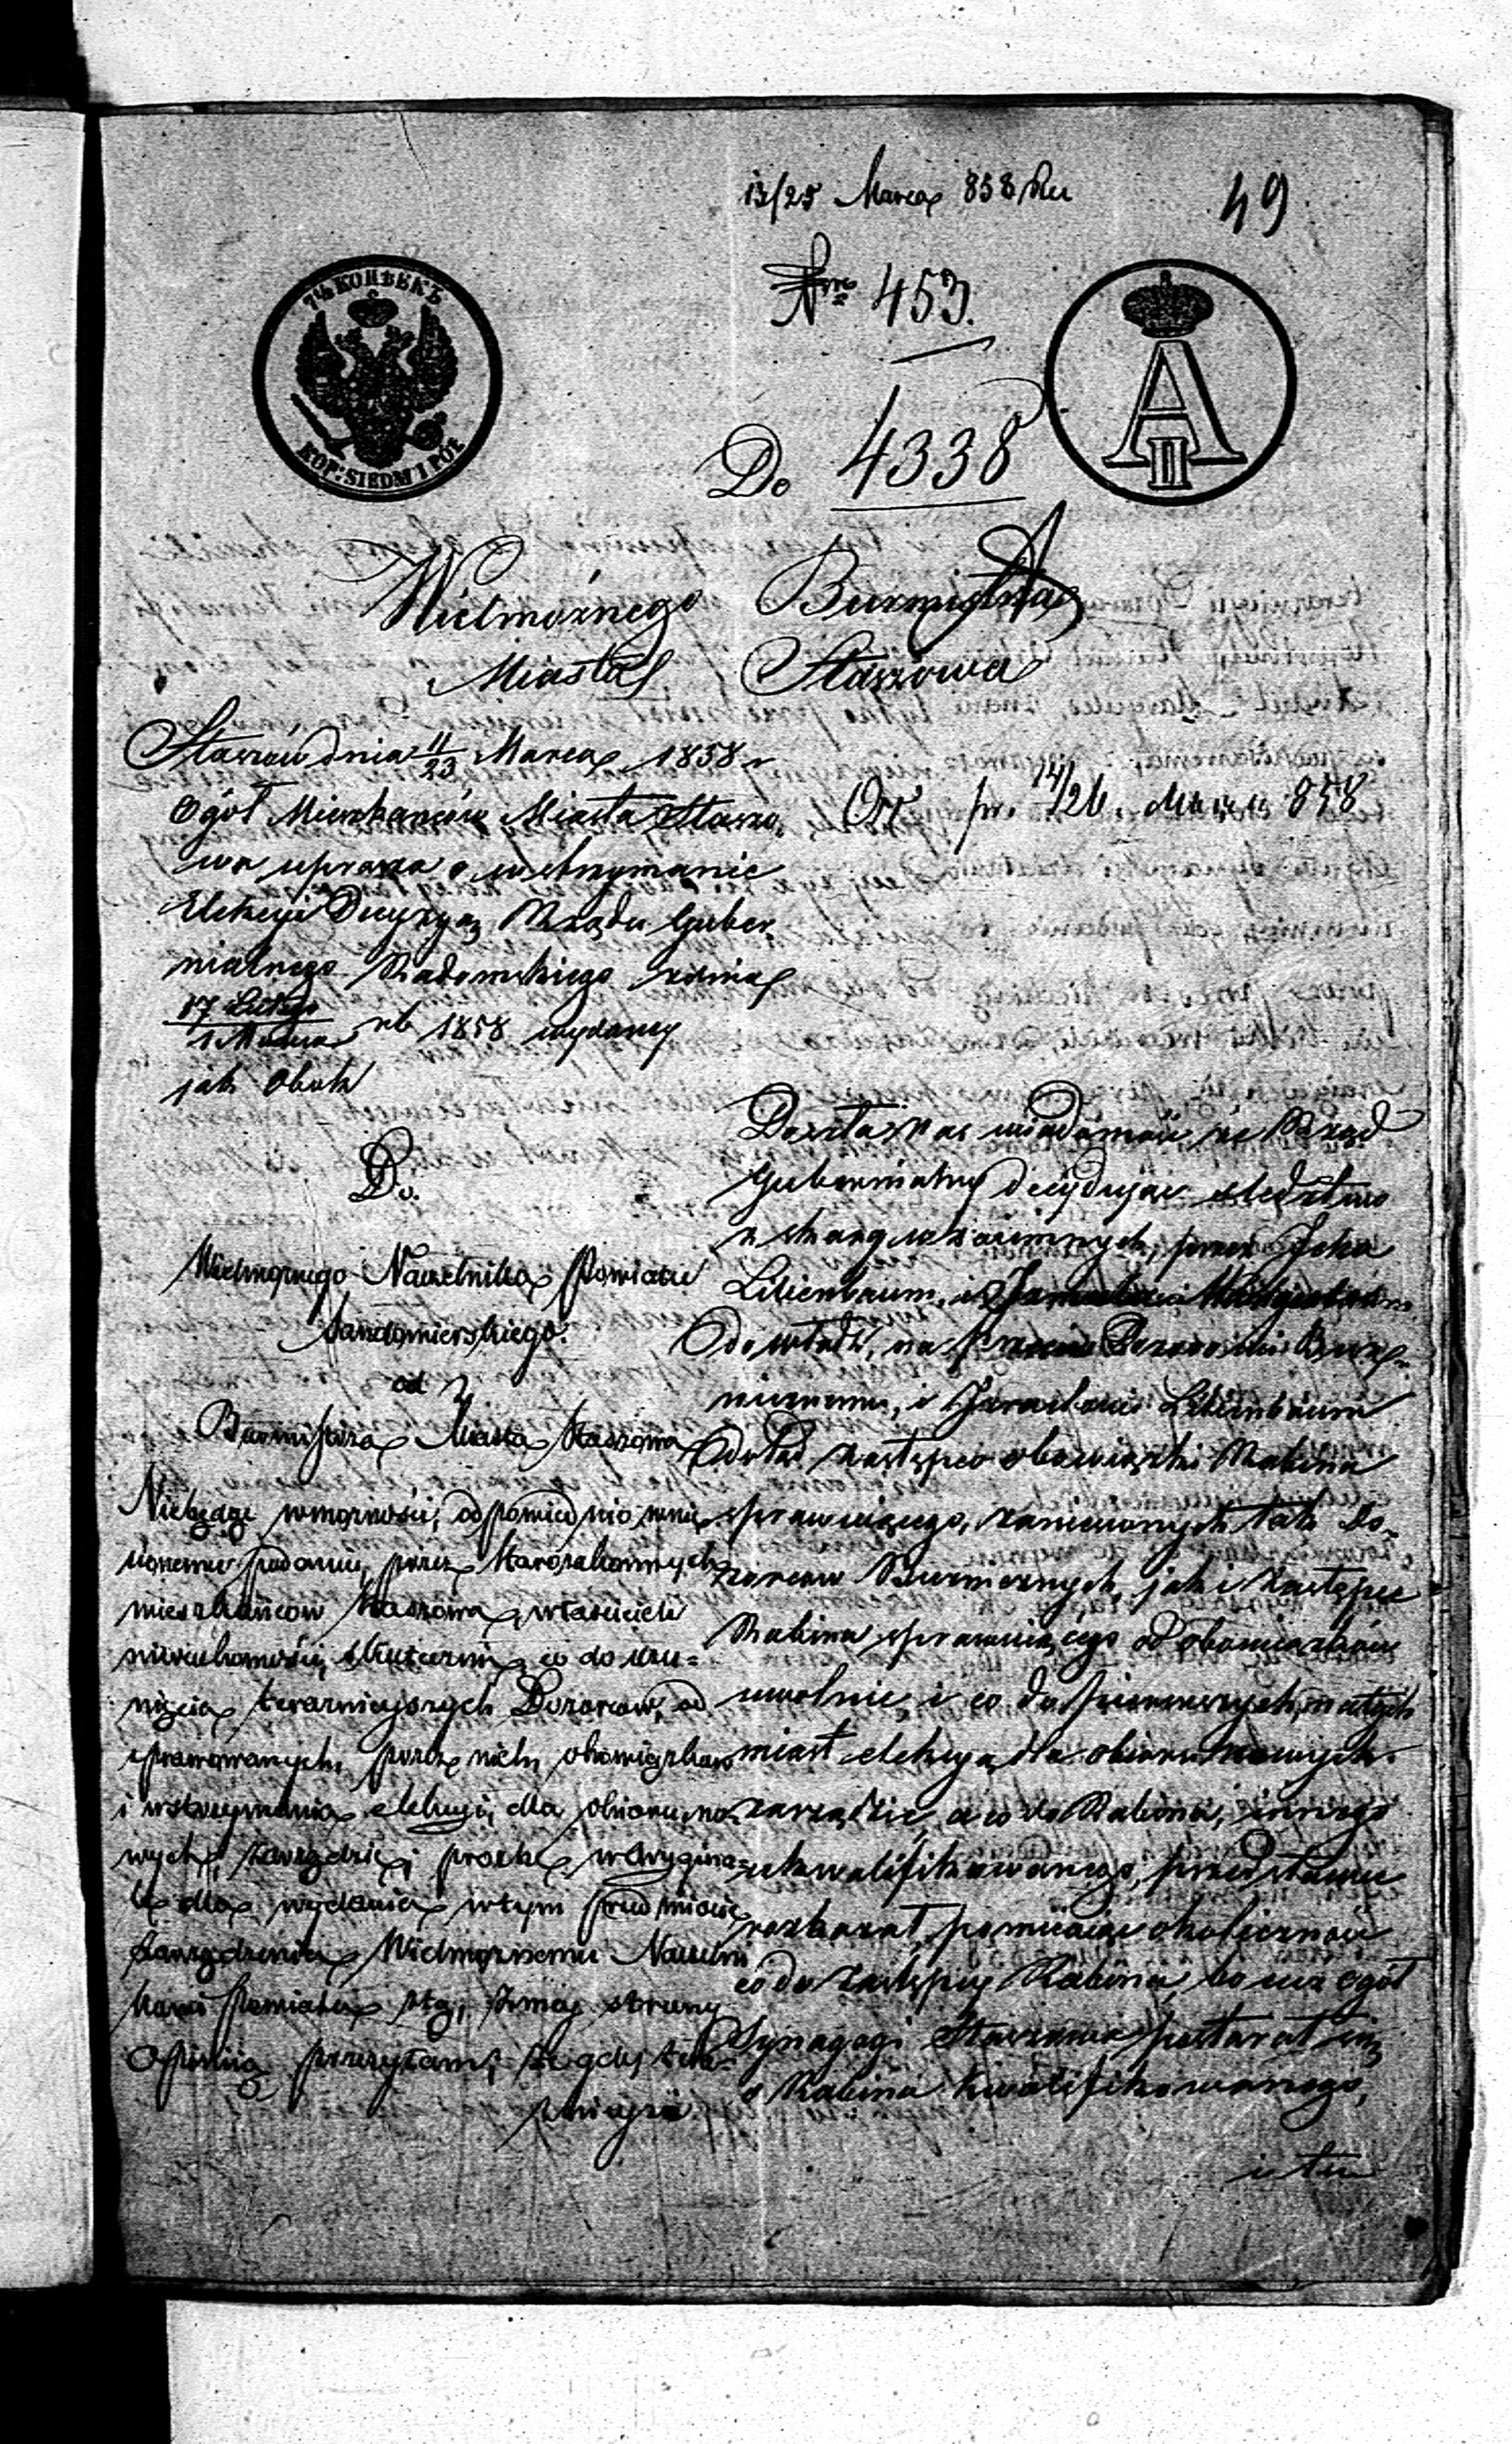 13/25 Marca 858 Ru
49
Nro 453.
7½ КОПѢЕКЪ
KOP: SIEDM I PÓŁ
A II
Do 4338
Wielmożnego Burmistrza
Miasta Staszowa
Staszów dnia 11/23 Marca 1858 r
Ogół Mieszkańców Miasta Staszo,
wa uprasza o wstrzymanie
Elekcyi Decyzyą Rządu Guber
nialnego Radomskiego z dnia
17 Lutego
1 Marca rb 1858 wydaney
jak Obok
pr. 14/26. Marca 858
Do.
Wielmożnego Naczelnika Powiatu
Sandomierskiego.
od
Burmistrza Miasta Staszowa
Niebędąc w możności, odpowiednio wnie
sionemu podaniu, przez Starozakonnych
mieszkańców Staszowa, właścicieli
nieruchomości, skutecznie, co do usu=
nięcia teraznieyszych Dozorców, od
sprawowanych, przez nich obowiązków
i wstrzymania elekcyi, dla obioru no=
wych, zarządzić, prośbę w Orygina=
le dla wydania w tym przedmiocie
Zarządzenia Wielmożnemu Naczelni
kowi Powiatu z mej strony
Opinią przesyłam, że gdy tera=
znieysi
Doszła nas wiadomość że Rząd
Gubernialny decydując śledztwo
z skarg wzaiemnych, przez Icka
Lilienbaum, i
do władz, na przeciw Dozorowi Bożn
niczemu, i Lilienbaum
dotąd zastępco obowiązki Rabina
sprawuiącego, zaniesionych tak Do=
zorców Bużnicznych, jak i Zastępcę
Rabina sprawuiącego od obowiązków
uwolnić, i co do pierwszych, natych
miast elekcyą dla obioru nowych
zarządzić, a co do Rabina, innego
ukwalifikowanego, przedstawić
rozkazał, pomijaiąc okoliczność
co do Zastępcy Rabina, bo już ogół
Synagogi Staszowa postarał się
o Rabina kwalifikowanego,
i tu